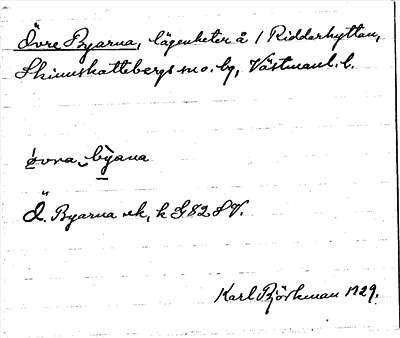 Övre Byarna, lägenheter å / Ridderhyttan,
Skinnskattebergs sn o. bg, Västmanl. l.
øvra byana
Ö. Byarna ek, k G82 SV.
Karl Björkman 1929.